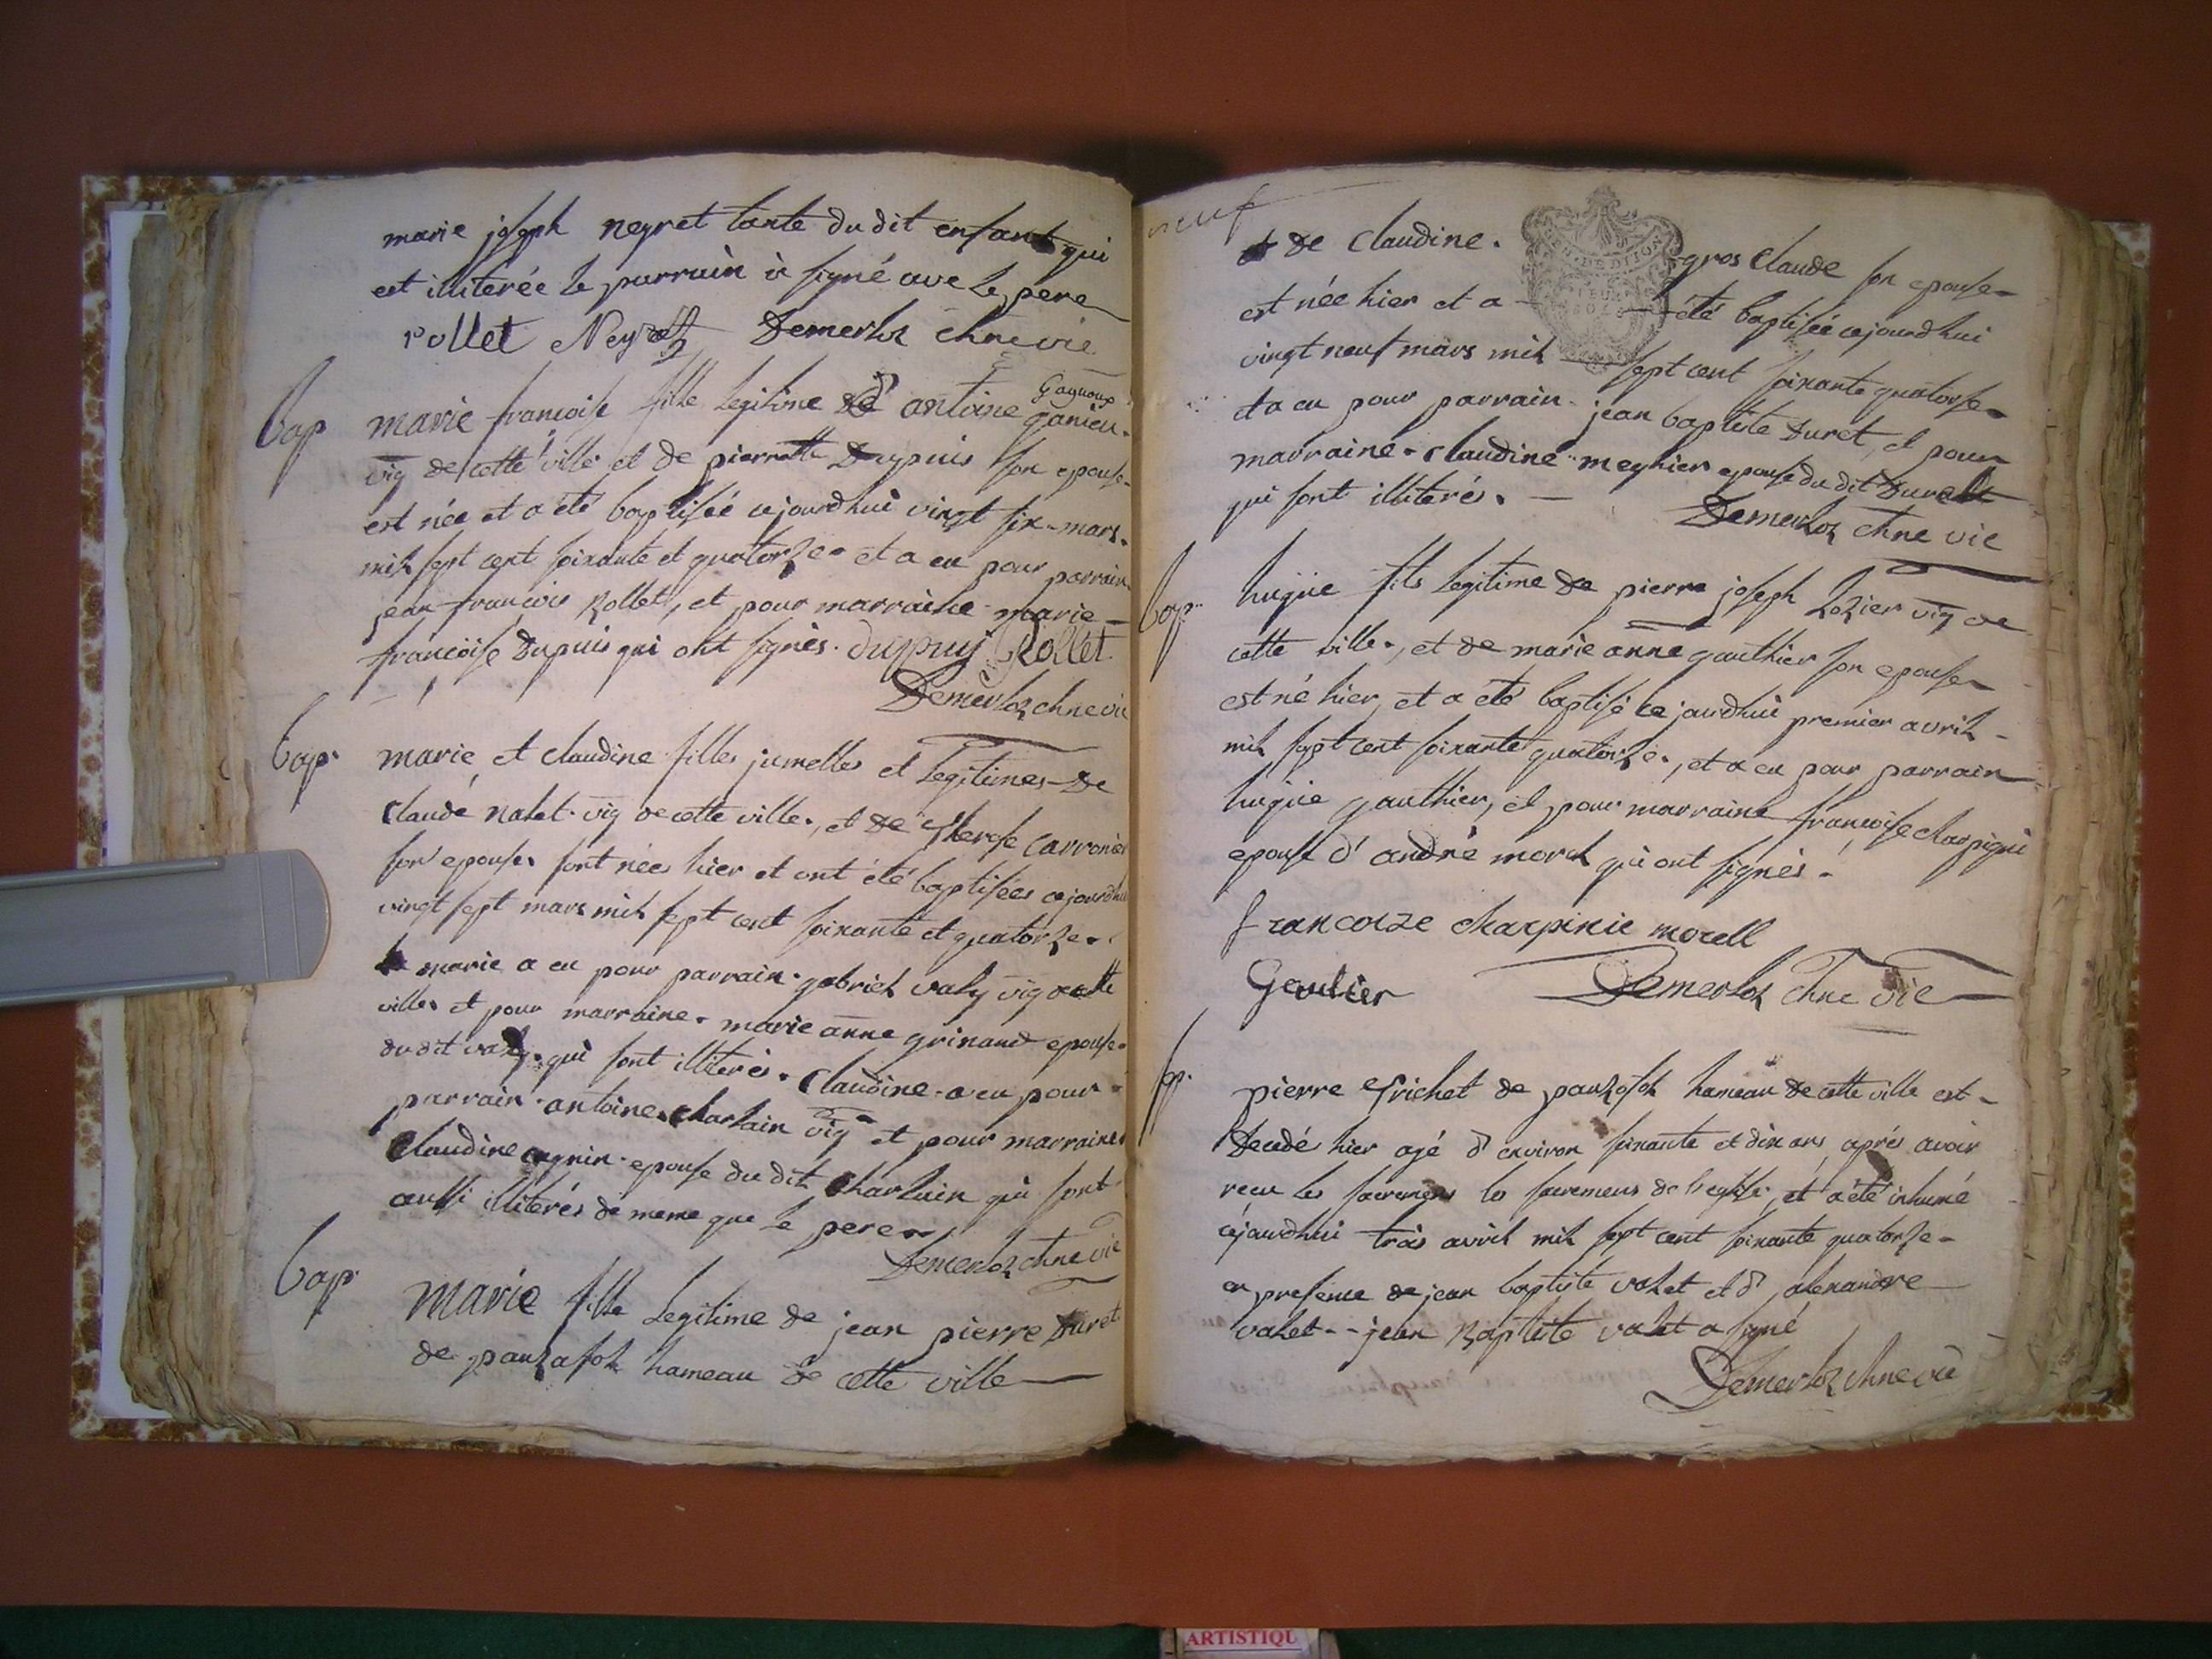 marie joseph neyret tante du dit enfant qui
est illiterée le parrain à signé ave le pere
rollet Neyret Demerloz chne vic
bap marie francoise fille legitime d' antoine ganieu
Gagnoux
vig de cette ville et de pierrette Dupuis son epouse
est née et a été baptisée cejourdhui vingt six mars
mil sept cent soixante et quatorze et a eu pour parrain
jean francois Rollet, et pour marraine marie
francoise Dupuis qui ont signés. dupuy Rollet
Demerloz chne vic
bap. marie et claudine filles jumelles et legitimes de
claude nalet vig de cette ville, et de therese carronier
son epouse sont nées hier et ont été baptisées cejourdhui
vingt sept mars mil sept cent soixante et quatorze
marie a eu pour parrain gabriel valy vig de cette
ville et pour marraine marie anne grinand epouse
du dit valy qui sont illiterés. Claudine a eu pour
parrain antoine charlain vig et pour marraine
Claudine epouse du dit Charlain qui sont
aussi illiterés de meme que le pere
Demerloz chne vic
bap. Marie fille legitime de jean pierre Duret
de pouzafol hameau de cette ville
neuf
et de claudine gros claude son epouse
GEN. DE DIJON
est née hier et a été baptisée cejourdhui
vingt neuf mars mil sept cent soixante quatorse
et a eu pour parrain jean baptiste Duret, et pour
marraine claudine meynier epouse du dit Duret
qui sont illiterés.
Demerloz chne vic
bap. hugue fils legitime de pierre joseph lozier vig de
cette ville, et de marie anne gauthier son epouse
est né hier, et a été baptisé cejourdhui premier avril
mil sept cent soixante quatorze, et a eu pour parrain
hugue gauthier, et pour marraine francoise charpigni
epouse d' andré morel qui ont signés.
francoize charpinie morell
Gautier Demerloz chne vic
sp. pierre frichet de pouzafol hameau de cette ville est
decedé hier agé d' environ soixante et dix ans aprés avoir
recu les sacremens les sacremens de l'eglise, et a été inhumé
cejourdhui trois avril mil sept cent soixante quatorze
en presence de jean baptiste valet et d' alexandre
valet jean Baptiste valet a signé
Demerloz chne vic
ARTISTIQU